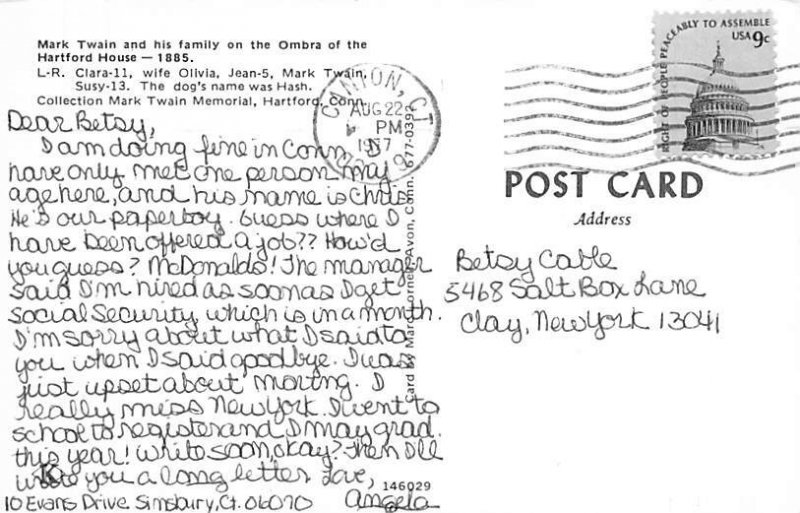 Mark Twain and his family on the Ombra of the
Hartford House — 1885.
L-R. Clara-11, wife Olivia, Jean-5, Mark Twain,
Susy-13. The dog's name was Hash.
Collection Mark Twain Memorial, Hartford, Conn.
Dear Betsy,
I am doing fine in Conn. I
have only met one person my
age here, and his name is Chris
He's our paperboy. Guess where I
have been offered a job?? How'd
you guess? McDonalds! The manager
said I'm hired as soon as I get
Social Security which is in a month.
I'm sorry about what I said to
you when I said goodbye. I was
just upset about moving. I
really miss New York. I went to
school to register and I may grad.
this year! Write soon, okay? Then I'll
write you a long letter. Love,
Angela
10 Evans Drive Simsbury, Ct. 06070
K
146029
Card by Marc Cornelis, Avon, Conn. 677-0392
CANTON, CT
AUG 22
PM
1977
RIGHT OF PEOPLE PEACEABLY TO ASSEMBLE
USA 9c
POST CARD
Address
Betsy Cable
5468 Salt Box Lane
Clay, New York 13041